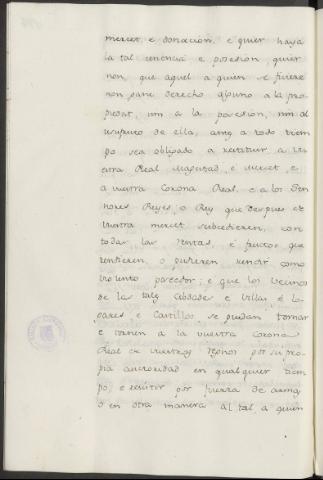 merced, e donación, e quier haya
la tal tenencia e posesion, quier
non, que aquel a quien se ficiere
non gane derecho alguno a la pro
piedat, nin a la posesion, nin al
usufructo de ella, antes todo tiem
po sea obligado a restituir a Vu
estra Real Magestad, e Merced, e
a vuestra Corona Real, e a los Se
nores Reyes, o Rey que despues de
vuestra merced subcedieren, con
todas las rentas, e fructos que
rendieren, o pudieren rendir como
violento posedor; e que los vecinos
de las tales Cibdades e Villas, e lo
gares e Castillos se puedan tornar
e tornen a la vuestra Corona
Real de vuestros regnos por su pro
pia auctoridad en qualquier tiem
po, e resistir por fuerza de armas
o en otra manera al tal a quien